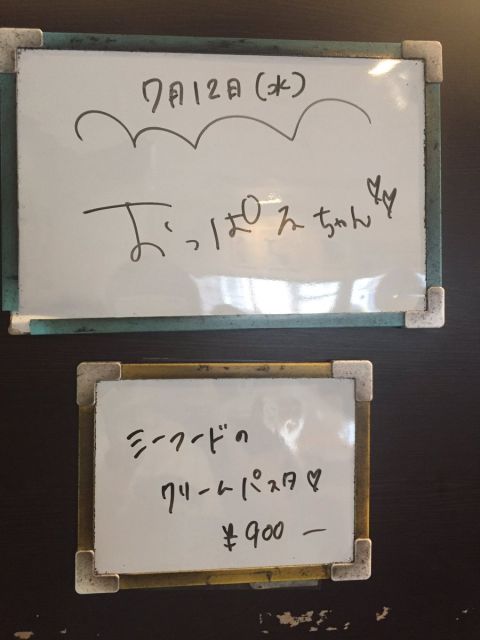 7月12日(水)
おっぱるちゃん♡♡
シーフードの
クリームパスタ♡
¥900ー